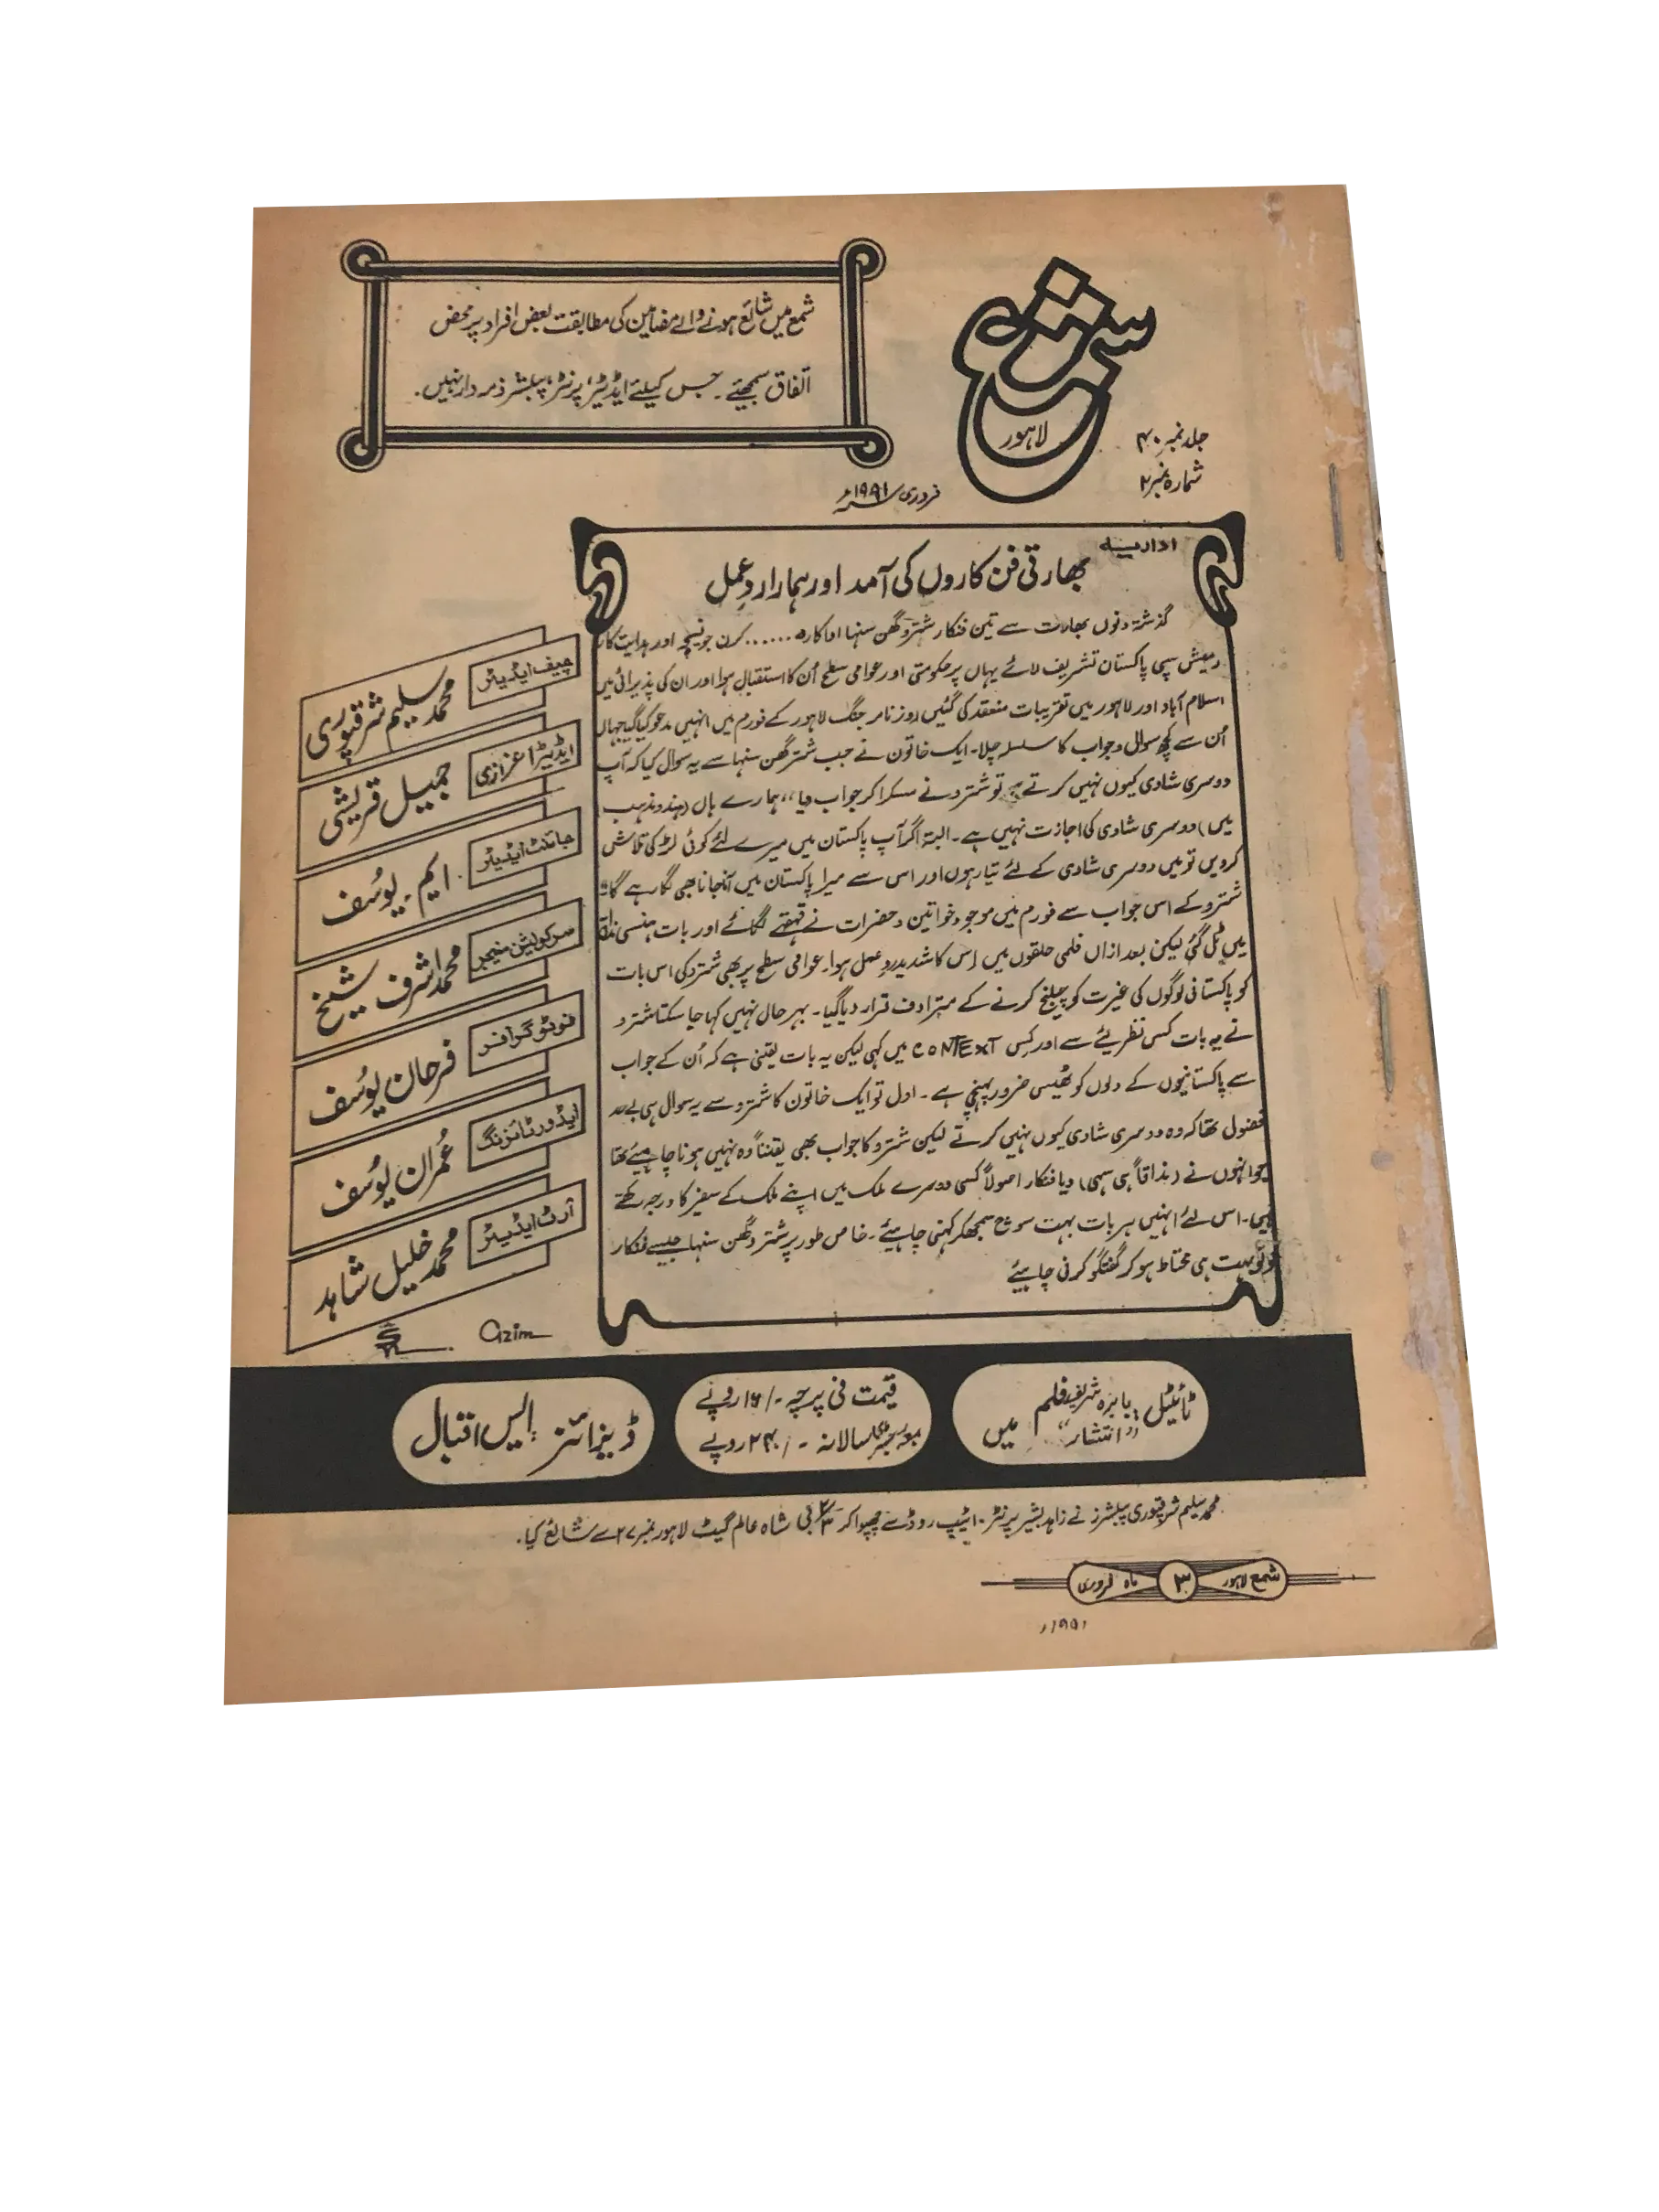 شمع
لاہور
جلد نمبر ۴۰
شمارہ نمبر ۲
فروری ۱۹۹۱ء
شمع میں شائع ہونے والے مضامین کی مطابقت بعض افراد پر محض
اتفاق سمجھئے ۔ جس کیلئے ایڈیٹر، پرنٹر، پبلشر ذمہ دار نہیں۔
اداریہ
بھارتی فن کاروں کی آمد اور ہمارا ردِ عمل
گذشتہ دنوں بھارت سے تین فنکار شتروگھن سنہا اداکارہ ...... کرن جونیجہ اور ہدایت کار
رمیش سپی پاکستان تشریف لائے یہاں پر حکومتی اور عوامی سطح اُن کا استقبال ہوا اور ان کی پذیرائی میں
اسلام آباد اور لاہور میں تقریبات منعقد کی گئیں روزنامہ جنگ لاہور کے فورم میں انہیں مدعو کیا گیا جہاں
اُن سے کچھ سوال و جواب کا سلسلہ چلا۔ ایک خاتون نے جب شتروگھن سنہا سے یہ سوال کیا کہ آپ
دوسری شادی کیوں نہیں کرتے؟ تو شترو نے مسکرا کر جواب دیا ،،ہمارے ہاں (ہندو مذہب
میں) دوسری شادی کی اجازت نہیں ہے ۔ البتہ اگر آپ پاکستان میں میرے لئے کوئی لڑکی تلاش
کردیں تو میں دوسری شادی کے لئے تیار ہوں اور اس سے میرا پاکستان میں آنا جانا بھی لگا رہے گا"
شترو کے اس جواب سے فورم میں موجود خواتین و حضرات نے قہقہے لگائے اور بات ہنسی مذاق
میں ٹل گئی لیکن بعد ازاں فلمی حلقوں میں اِس کا شدید ردِ عمل ہوا۔ عوامی سطح پر بھی شترو کی اس بات
کو پاکستانی لوگوں کی غیرت کو چیلنج کرنے کے مترادف قرار دیا گیا ۔ بہر حال نہیں کہا جا سکتا شترو
نے یہ بات کس نظریئے سے اور کس CONTEXT میں کہی لیکن یہ بات یقینی ہے کہ اُن کے جواب
سے پاکستانیوں کے دلوں کو ٹھیس ضرور پہنچی ہے ۔ اول تو ایک خاتون کا شترو سے یہ سوال ہی بے حد
فضول تھا کہ وہ دوسری شادی کیوں نہیں کرتے لیکن شترو کا جواب بھی یقیناً وہ نہیں ہونا چاہیئے تھا
جو انہوں نے (مذاقاً ہی سہی) دیا فنکار اصولاً کسی دوسرے ملک میں اپنے ملک کے سفیر کا درجہ رکھتے
ہیں۔ اس لئے انہیں ہر بات بہت سوچ سمجھ کر کہنی چاہیئے ۔ خاص طور پر شتروگھن سنہا جیسے فنکار
کو تو بہت ہی محتاط ہو کر گفتگو کرنی چاہیئے
چیف ایڈیٹر
محمد سلیم شرقپوری
ایڈیٹر اعزازی
جمیل قریشی
جائنٹ ایڈیٹر
ایم ۔ یوسُف
سرکولیشن منیجر
محمد اشرف شیخ
فوٹو گرافر
فرحان یوسُف
ایڈورٹائزنگ
عُمران یوسُف
آرٹ ایڈیٹر
محمد خلیل شاہد
Azim
ٹائیٹل بابرہ شریف فلم
"انتشار" میں
قیمت فی پرچہ -/۱۶ روپے
سالانہ -/۲۴۰ روپے
ڈیزائنر ایس اقبال
محمد سلیم شرقپوری پبلشرز نے زاہد بشیر پرنٹر ۱۰ ایٹپ روڈ سے چھپوا کر بی شاہ عالم گیٹ لاہور نمبر ۲۷ سے شائع کیا۔
شمع لاہور ۳ ماہ فروری
۱۹۹۱ء